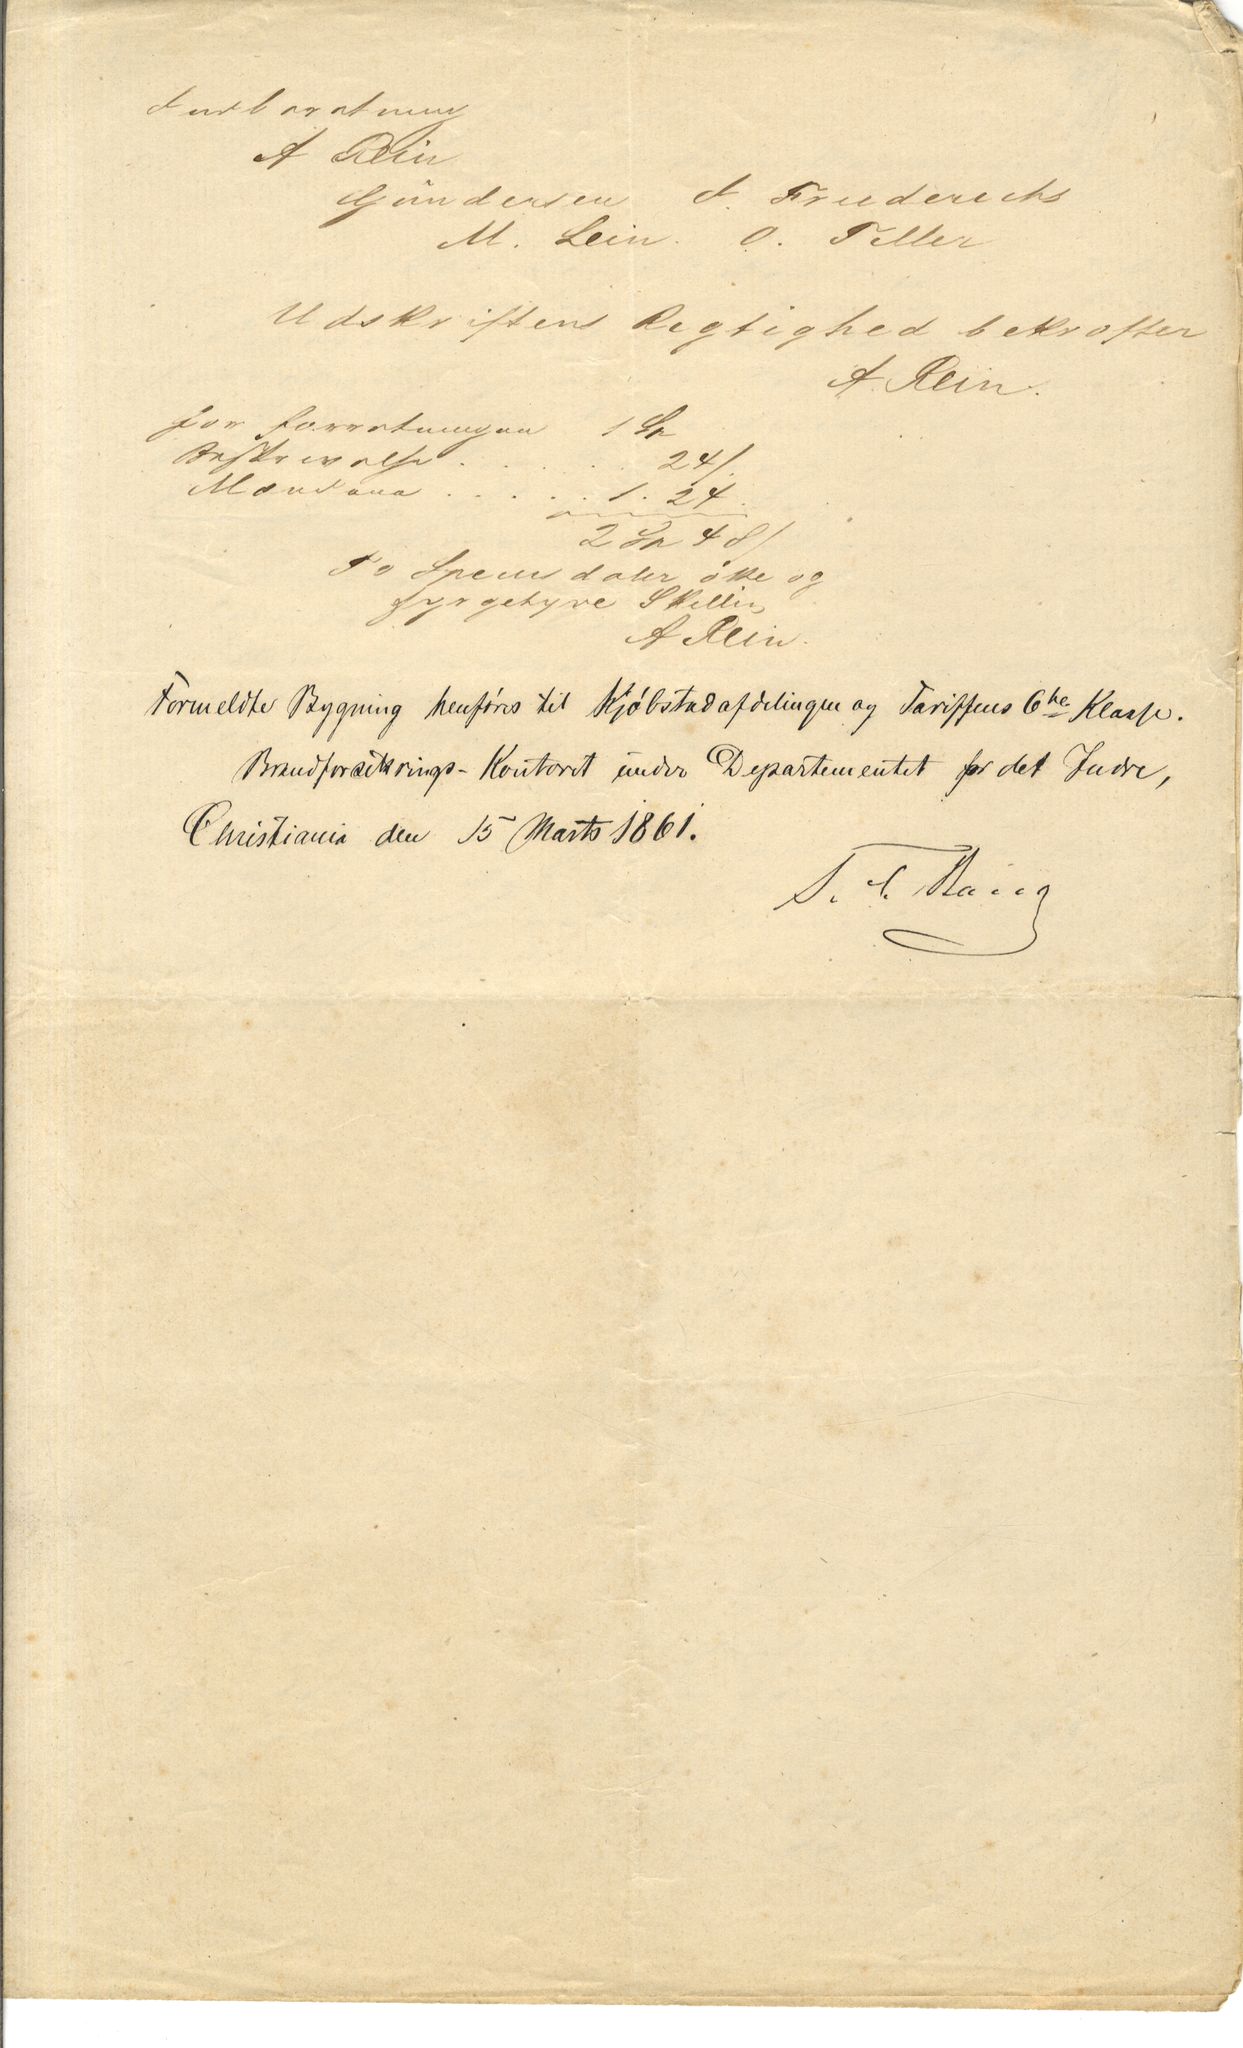 A Rein
Gündersen F. Friederichs
M. Lein. O. Teller
Udskriftens Regtighed bekræfter
A. Rein.
for forretningen 1 Sp
Beskrivelse . . . . . . 24 /.
Mændene . . . . . 1. 24.
2 Sp 48 /
To Speciesdaler åtte og
fyrgetyve Skilling
A Rein.
Formeldte Bygning henføres til Kjøbstadafdelingen og Tariffens 6te Klasse.
Brandforsikrings-Kontoret under Departementet for det Indre,
Christiania den 15 Marts 1861.